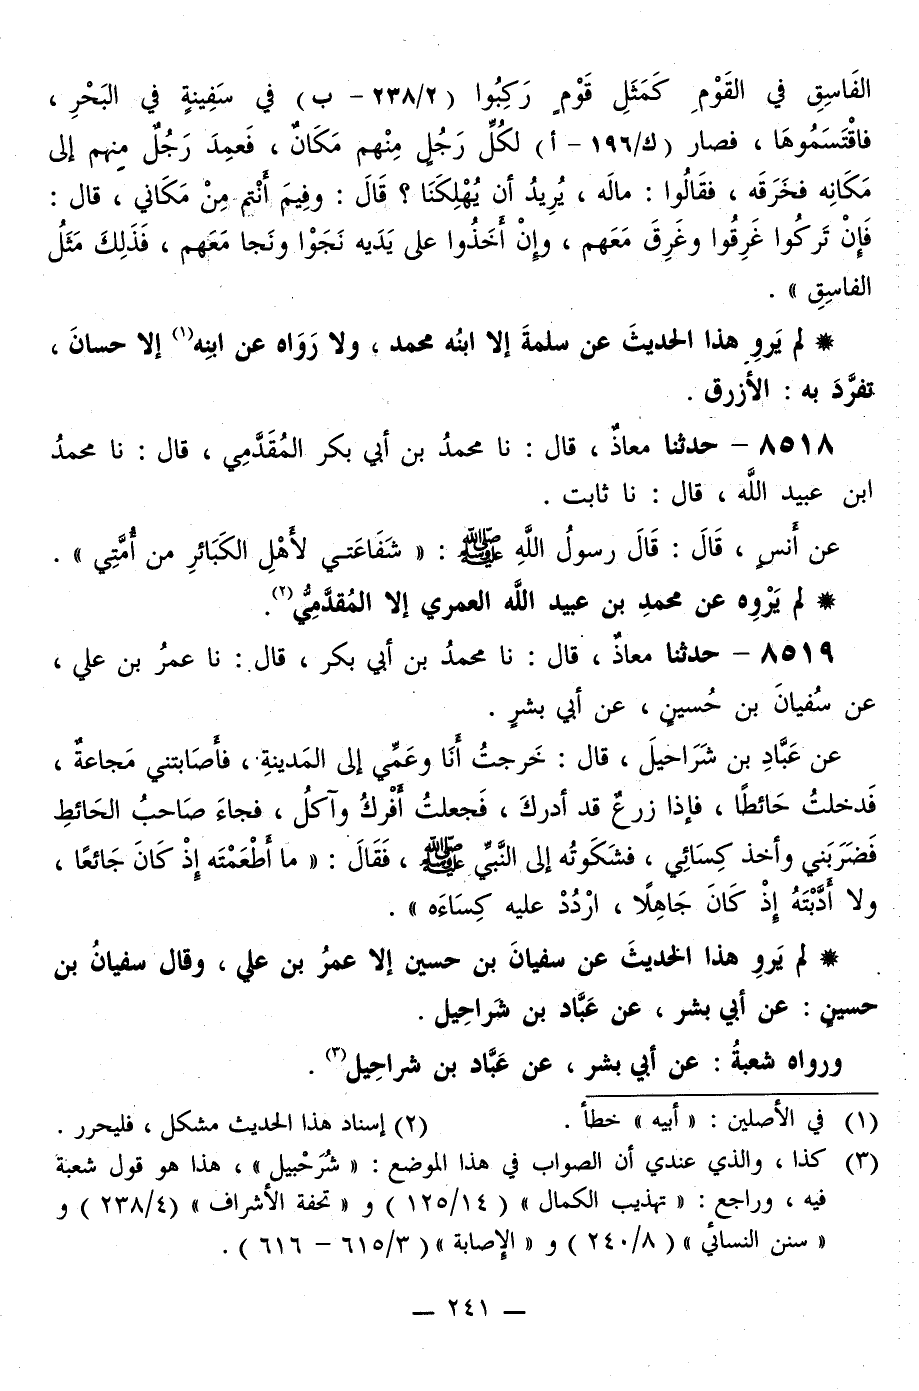 الفَاسِقِ في القَوْمِ كَمَثَلِ قَوْمٍ رَكِبُوا ( ٢٣٨/٢ - ب ) في سَفِينةٍ في البَحْرِ ،
فاقْتَسَمُوهَا ، فصار ( ك/١٩٦ - أ ) لكُلِّ رَجُلٍ مِنْهم مَكَانٌ ، فَعمِدَ رَجُلٌ مِنهم إلى
مَكَانِه فخَرَقَه ، فقَالُوا : مالَه ، يُرِيدُ أن يُهْلِكَنَا ؟ قَالَ : وفِيمَ أَنْتم مِنْ مَكَاني ، قال :
فَإنْ تَركُوا غَرِقُوا وغَرِقَ مَعَهم ، وإنْ أَخَذُوا على يَدَيه نَجَوْا ونَجا مَعَهم ، فَذَلِكَ مَثَلُ
الفاسِقِ » .
* لم يَروِ هذا الحديثَ عن سلمةَ إلا ابنُه محمد ، ولا رَوَاه عن ابنِه(١) إلا حسانَ ،
تفرَّدَ به : الأزرق .
٨٥١٨ - حدثنا معاذٌ ، قال : نا محمدُ بن أبي بكر المُقَدَّمِي ، قال : نا محمدُ
ابن عبيد اللَّه ، قال : نا ثابت .
عن أَنسٍ ، قَالَ : قَالَ رسولُ اللَّهِ ﷺ : « شَفَاعَتـي لأَهْلِ الكَبَائرِ من أُمَّتِي » .
* لم يَرْوِه عن محمدِ بن عبيد اللَّه العمري إلا المُقدَّمِيُّ(٢).
٨٥١٩ - حدثنا معاذٌ ، قال : نا محمدُ بن أبي بكر ، قال : نا عمرُ بن علي ،
عن سُفيانَ بن حُسينٍ ، عن أبي بشرٍ .
عن عَبَّادِ بن شَرَاحيلَ ، قال : خَرجتُ أَنَا وعَمِّي إلى المَدينةِ ، فأَصَابتني مَجاعةٌ ،
فَدخلتُ حَائطًا ، فإذا زرعٌ قد أدركَ ، فَجعلتُ أَفْركُ وآكلُ ، فجاءَ صَاحبُ الحَائطِ
فَضَرَبَني وأخذ كِسَائِي ، فشكَوتُه إلى النَّبيِّ ﷺ ، فَقَالَ : « ما أَطْعَمْتَه إِذْ كَانَ جَائعًا ،
ولا أَدَّبْتَهُ إِذْ كَانَ جَاهِلًا ، ارْدُدْ عليه كِسَاءَه » .
* لم يَروِ هذا الحديثَ عن سفيانَ بن حسين إلا عمرُ بن علي ، وقال سفيانُ بن
حسينٍ : عن أبي بشر ، عن عَبَّاد بن شَراحِيل .
ورواه شعبةُ : عن أبي بشر ، عن عَبَّاد بن شراحِيل(٣) .
(١) في الأصلين : « أبيه » خطأ . (٢) إسناد هذا الحديث مشكل ، فليحرر .
(٣) كذا ، والذي عندي أن الصواب في هذا الموضع : « شُرَحْبيل » ، هذا هو قول شعبة
فيه ، وراجع : « تهذيب الكمال » ( ١٢٥/١٤ ) و « تحفة الأشراف » (٢٣٨/٤ ) و
« سنن النسائي » ( ٢٤٠/٨ ) و « الإصابة » ( ٦١٥/٣ - ٦١٦ ) .
— ٢٤١ —